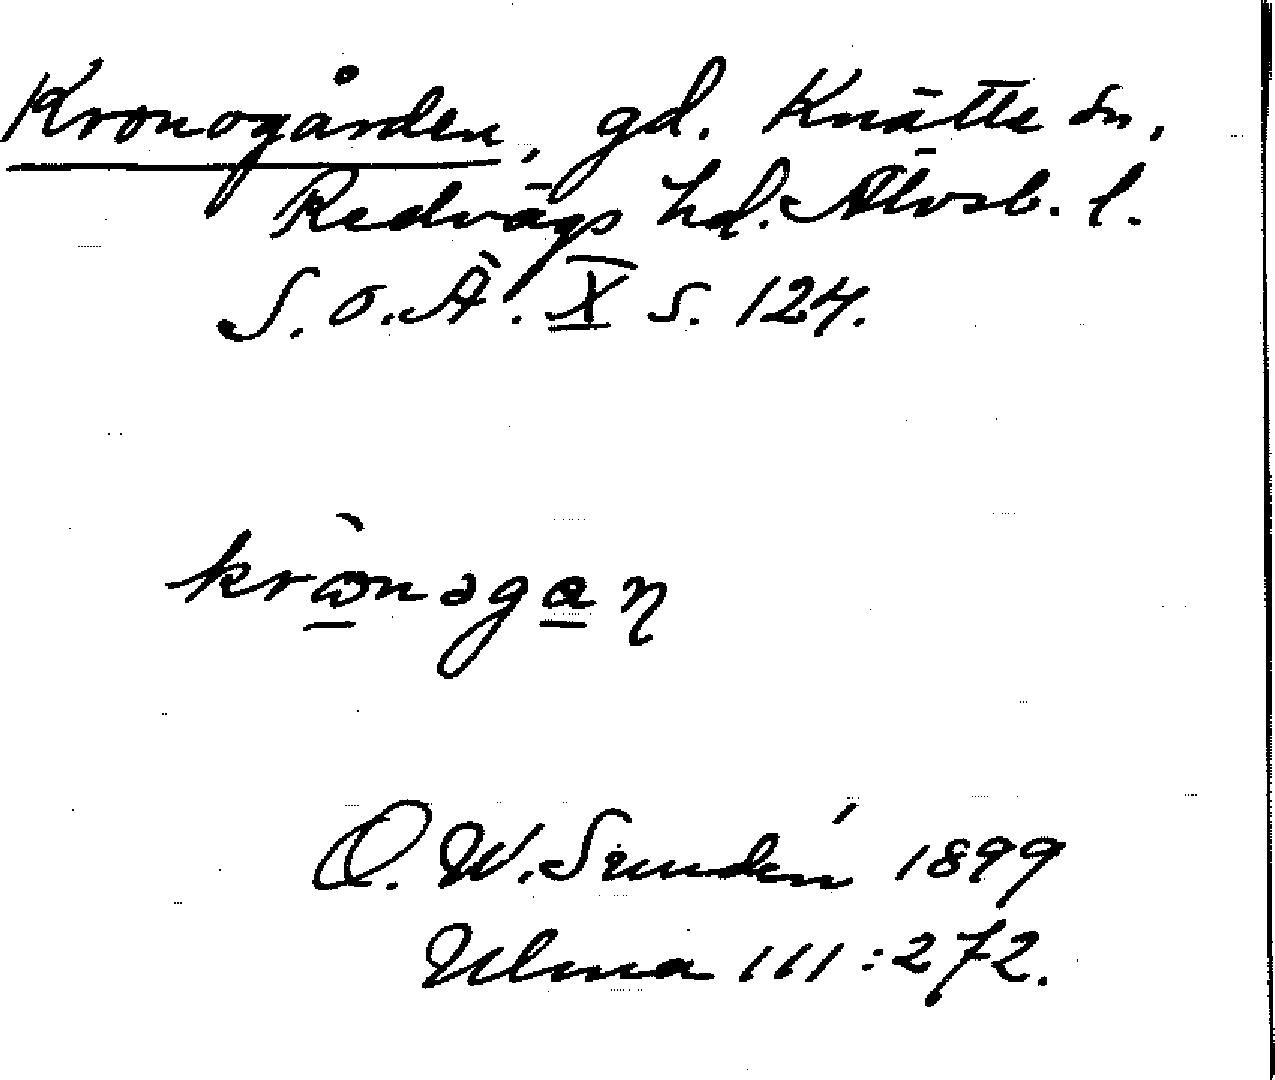 Kronogården, gd. Knätte sn,
Redvägs hd. Älvsb. l.
S. O. Ä. X s. 124.
krònəgaɳ
O. W. Sundén 1899
Ulma 111:272.